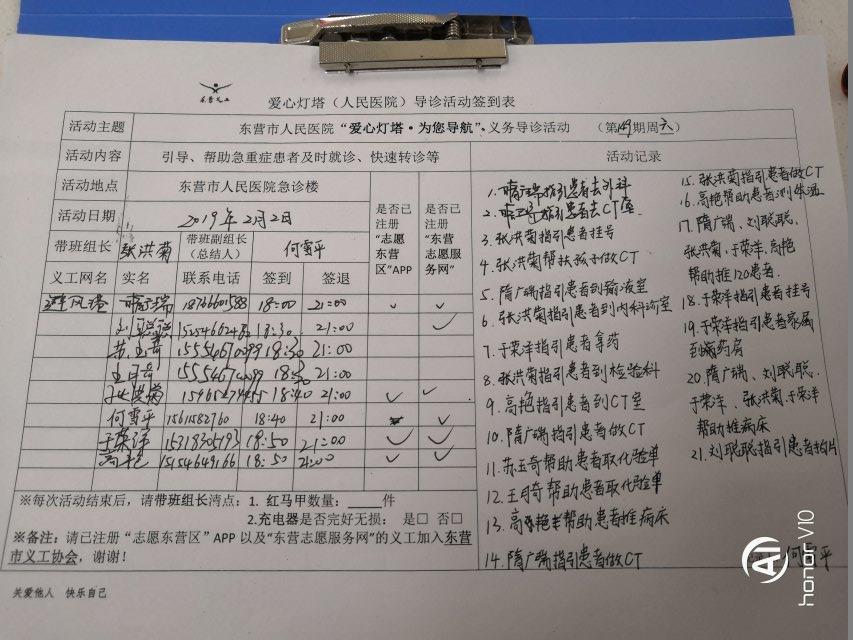 东营义工
爱心灯塔（人民医院）导诊活动签到表
活动主题 东营市人民医院“爱心灯塔·为您导航”，义务导诊活动 （第149期周六）
活动内容 引导、帮助急重症患者及时就诊、快速转诊等
活动地点 东营市人民医院急诊楼
活动日期 2019年2月2日
带班组长 张洪菊 带班副组长（总结人） 何雪平
是否已注册“志愿东营区”APP
是否已注册“东营志愿服务网”
义工网名 实名 联系电话 签到 签退
避风港 隋广瑞 18:00 21:00
刘聪聪 18:30 21:00
苏玉奇 18:30 21:00
王月奇 18:30 21:00
张洪菊 18:40 21:00
何雪平 1561582760 18:40 21:00
于荣洋 15318305193 18:50 21:00
高艳 15154649166 18:50 21:00
※每次活动结束后，请带班组长清点：1. 红马甲数量：____件
2.充电器是否完好无损： 是□ 否□
※备注：请已注册“志愿东营区”APP以及“东营志愿服务网”的义工加入东营
市义工协会，谢谢！
活动记录
1. 隋广瑞指引患者去外科
2. 隋广瑞指引患者去CT室
3. 张洪菊指引患者挂号
4. 张洪菊帮扶孩子做CT
5. 隋广瑞指引患者到输液室
6. 张洪菊指引患者到内科诊室
7. 于荣洋指引患者拿药
8. 张洪菊指引患者到检验科
9. 高艳指引患者到CT室
10. 隋广瑞指引患者做CT
11. 苏玉奇帮助患者取化验单
12. 王月奇帮助患者取化验单
13. 高艳帮助患者推病床
14. 隋广瑞指引患者做CT
15. 张洪菊指引患者做CT
16. 高艳帮助患者测体温
17. 隋广瑞、刘聪聪、
张洪菊、于荣洋、高艳
帮助推120患者.
18. 于荣洋指引患者挂号
19. 于荣洋指引患者家属
到药房
20. 隋广瑞、刘聪聪、
于荣洋、张洪菊、于荣洋
帮助推病床
21. 刘聪聪指引患者拍片
何雪平
关爱他人 快乐自己
AI
honor V10